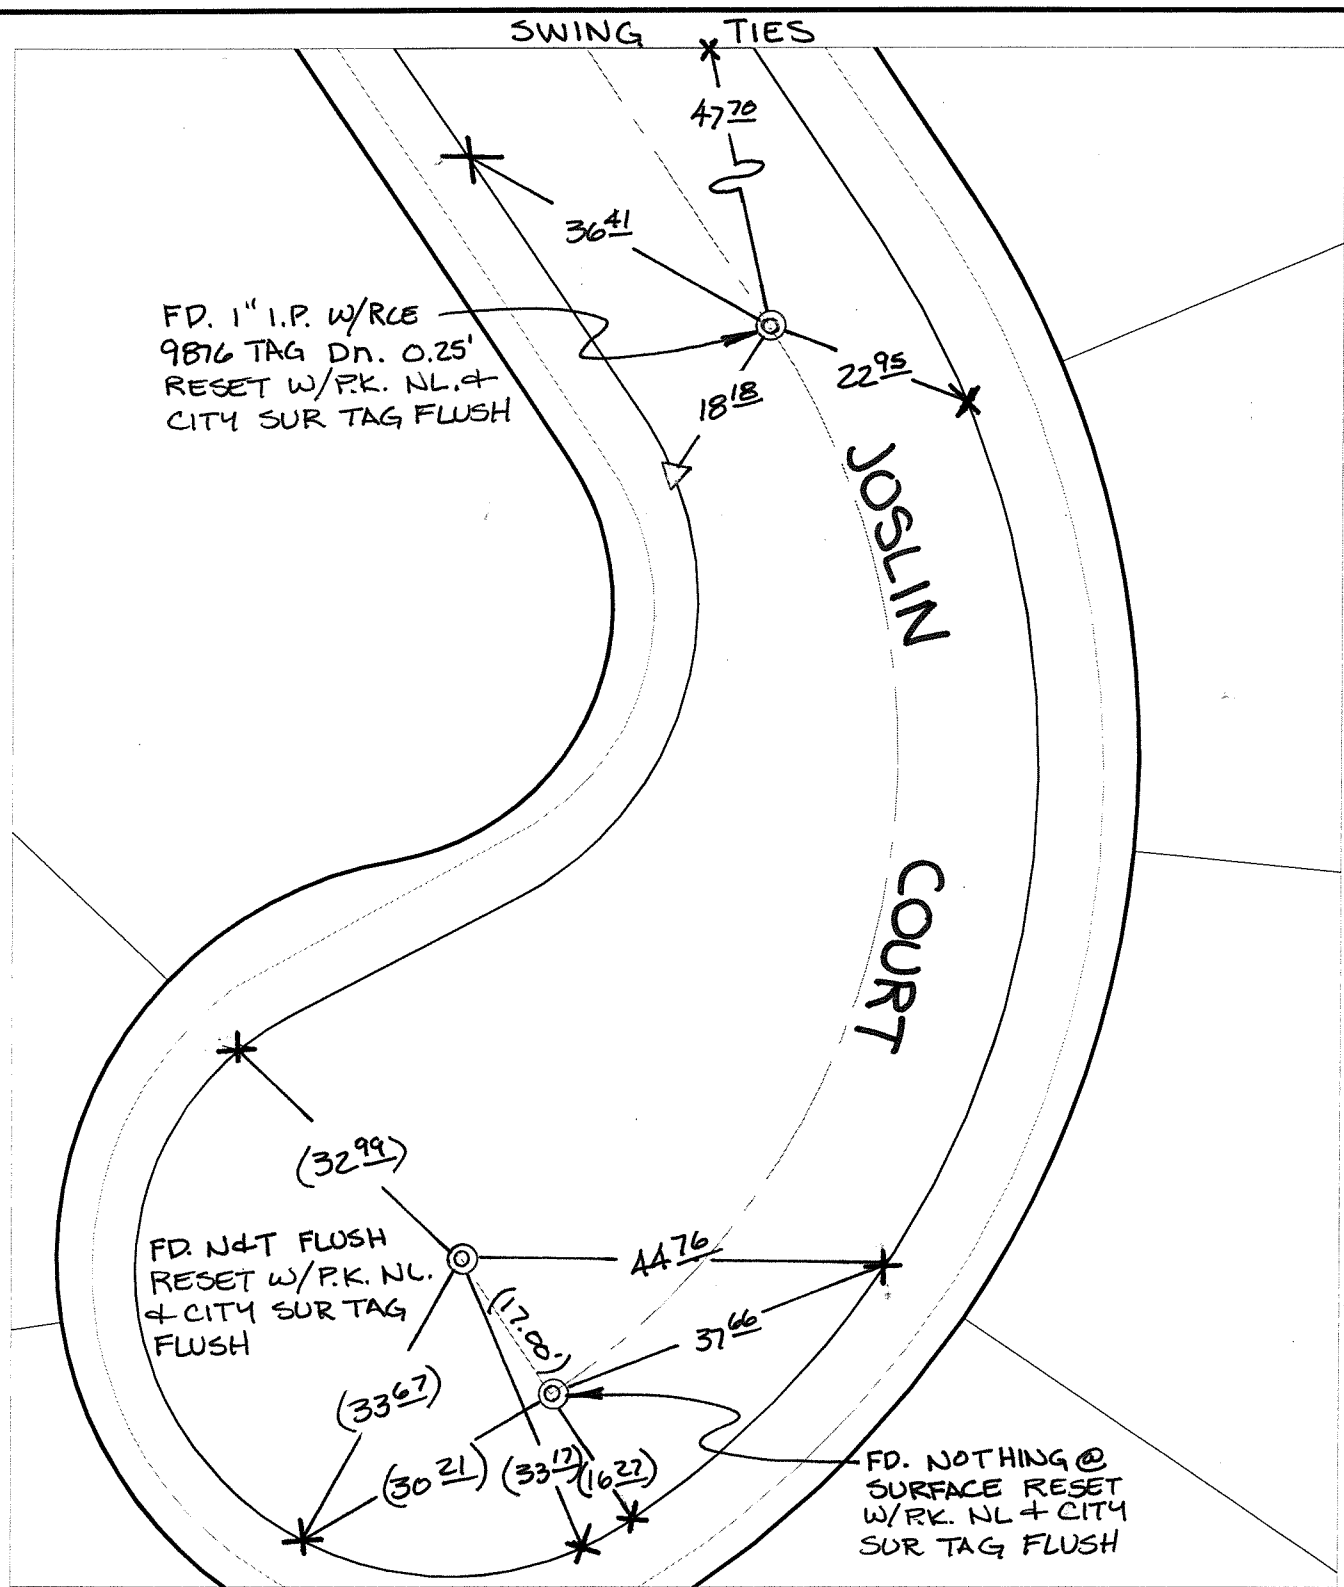 SWING TIES
47 70
36 41
FD. 1" I.P. W/RCE
9876 TAG Dn. 0.25'
RESET W/P.K. NL. &
CITY SUR TAG FLUSH
22 95
18 18
JOSLIN
COURT
(32 99)
FD. N&T FLUSH
RESET W/P.K. NL.
& CITY SUR TAG
FLUSH
44 76
(17.00)
37 66
(33 67)
(30 21)
(33 17)
(16 27)
FD. NOTHING @
SURFACE RESET
W/P.K. NL & CITY
SUR TAG FLUSH